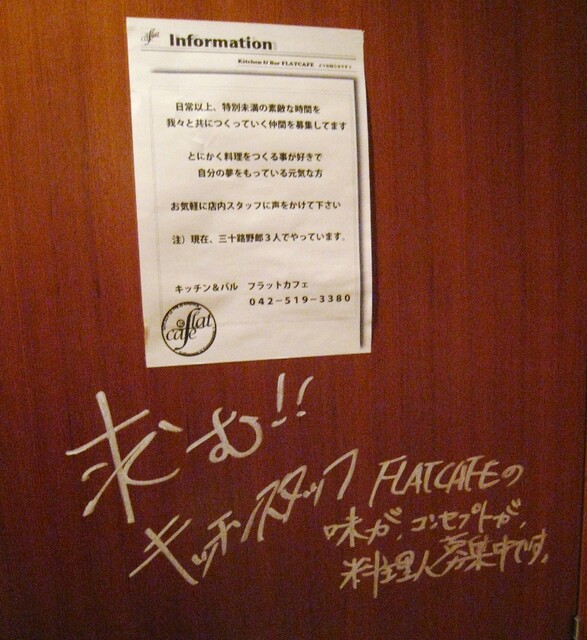 flat cafe
Information
Kitchen & Bar FLATCAFE
日常以上、特別未満の素敵な時間を
我々と共につくっていく仲間を募集してます
とにかく料理をつくる事が好きで
自分の夢をもっている元気な方
お気軽に店内スタッフに声をかけて下さい
注）現在、三十路野郎３人でやっています。
キッチン＆バル フラットカフェ
０４２－５１９－３３８０
flat cafe
求む!!
キッチンスタッフ
FLATCAFEの
味が、コンセプトが、
料理人募集中です。